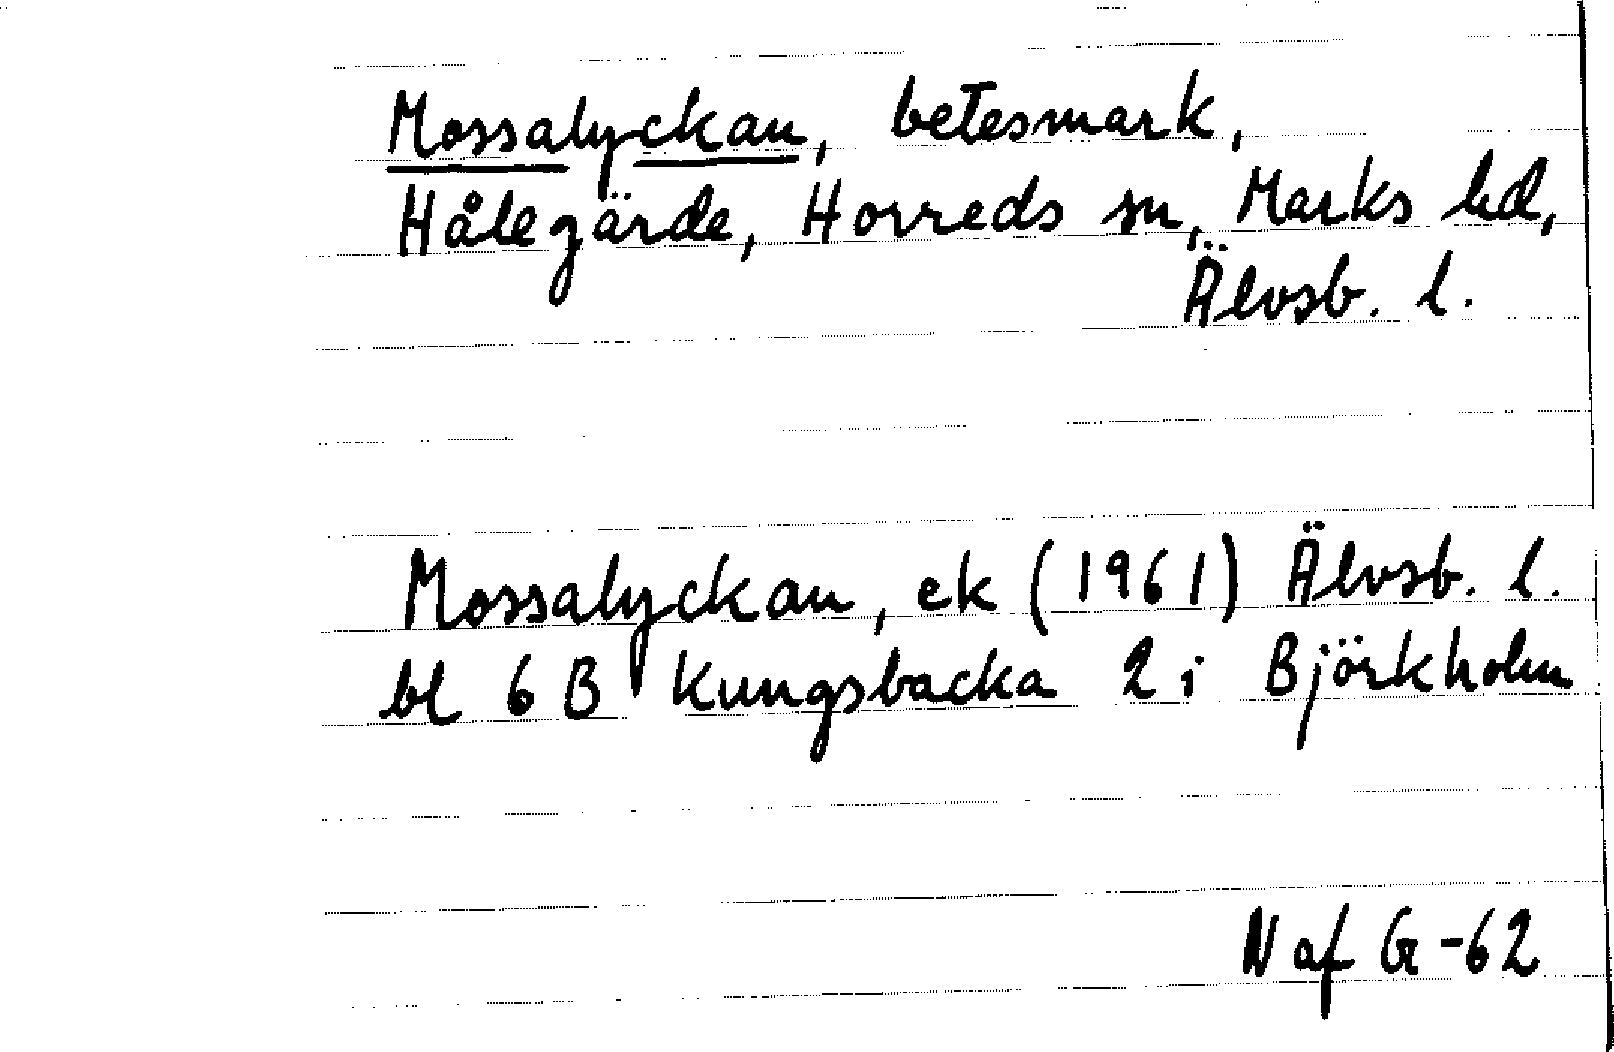 Mossalyckan, betesmark,
Hålegärde, Horreds sn, Marks hd,
Älvsb. l.
Mossalyckan, ek (1961) Älvsb. l.
bl 6 B Kungsbacka 2 i Björkholm
N af G -62